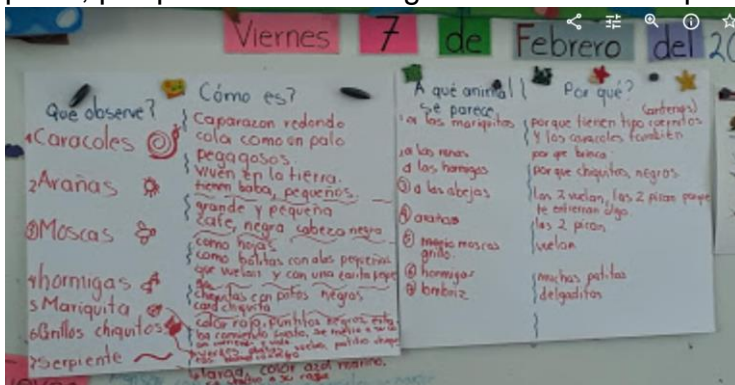 Viernes 7 de Febrero del 20
Qué observe?
1 Caracoles
2 Arañas
3 Moscas
4 hormigas
5 Mariquita
6 Grillos chiquitos
7 Serpiente
Cómo es?
Caparazon redondo
cola como un palo
pegagosos.
viven en la tierra.
tienen baba, pequeños.
grande y pequeña
cafe, negra cabeza negra
como hojas
como bolitas con alas pequeñas
que vuelan y con una carita
chiquitas con patas negras
cara chiquita
color roja, puntitos negros
larga, color azul marino.
A qué animal
se parece
1 a las mariquitas
a las ranas
a las hormigas
3 a las abejas
4 arañas
5 moscas
grillo.
6 hormigas
7 lombriz
Por qué?
(antenas)
porque tienen tipo cuernitos
y los caracoles también
por que brinca
porque chiquitas, negras
las 2 vuelan, las 2 pican porque
te entierran algo
las 2 pican
vuelan
muchas patitas
delgaditas